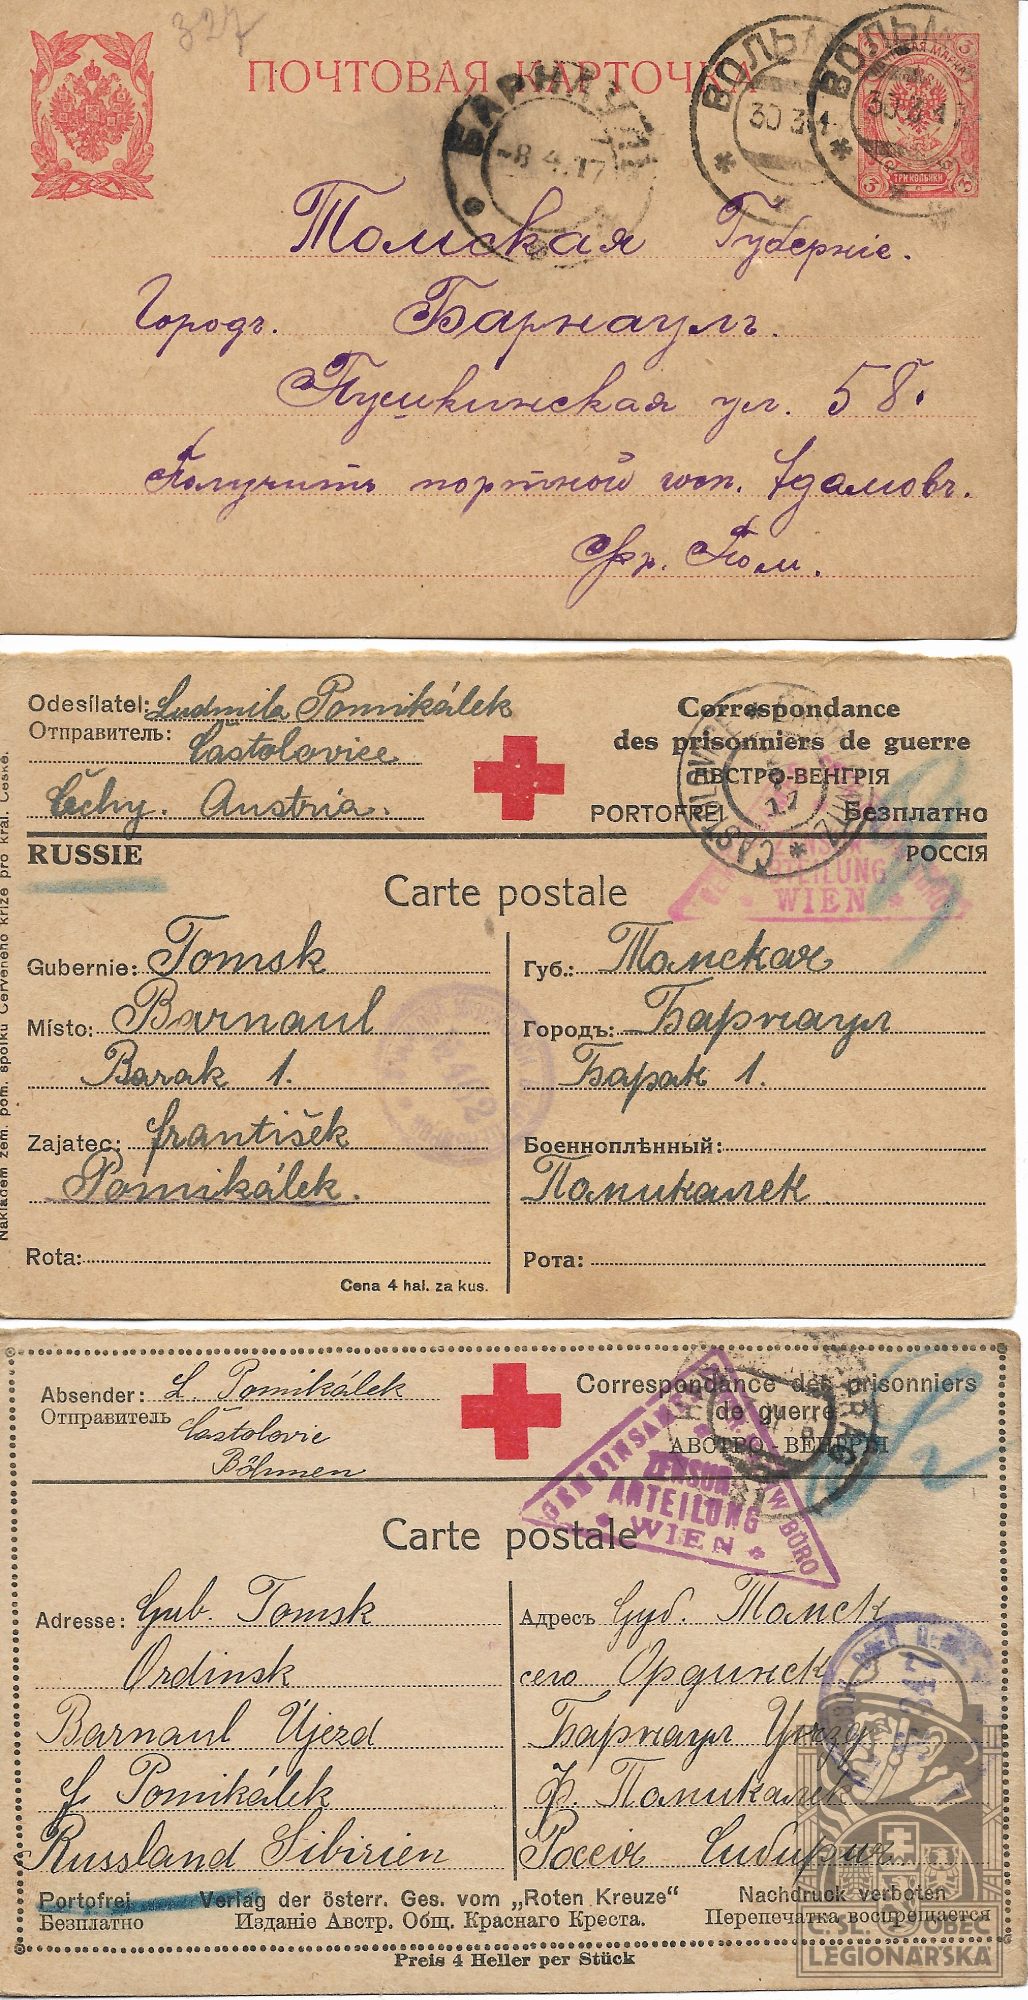 327
ПОЧТОВАЯ КАРТОЧКА
БАРНАУЛ
-8.4.17
ВОЛЬМ
30.3.1
ВОЛЬМ
30.3.17
3
3
3
ТРИ КОПѢЙКИ
3
Томская Губерніе.
Городъ. Барнаулъ.
Пушкинская ул. 58.
Получить портной госп. Адамовъ.
Фр. Пом.
Odesílatel: Ludmila Pomikálek
Отправитель: Častolovice
Čechy. Austria.
Correspondance
des prisonniers de guerre
АВСТРО-ВЕНГРІЯ
PORTOFREI Безплатно
17
ZENSUR
ABTEILUNG
WIEN
RUSSIE
РОССІЯ
Carte postale
Gubernie: Tomsk
Místo: Barnaul
Barak 1.
Zajatec: František
Pomikálek.
Rota:
Cena 4 hal. za kus.
Губ.: Томская
Городъ: Барнаул
Барак 1.
Военноплѣнный:
Памикалек
Рота:
Nákladem zem. pom. spolku Červeného kříže pro král. České.
Absender: L. Pomikálek
Отправитель
Častolovic
Böhmen
Correspondance des prisonniers
de guerre
АВСТРО-ВЕНГРІЯ
GEMEINSAMES
ZENSUR
ABTEILUNG
WIEN
BÜRO
Carte postale
Adresse: Gub. Tomsk
Ordinsk
Barnaul Újezd
f. Pomikálek
Russland Sibirien
Адресъ Губ. Томск
село Ордииск
Барнаул Уѣзд
Ф. Памикалек
Россія Сибирия
Portofrei Verlag der österr. Ges. vom „Roten Kreuze“ Nachdruck verboten
Безплатно Изданіе Австр. Общ. Краснаго Креста. Перепечатка воспрещается
Preis 4 Heller per Stück
Č.SL. OBEC
LEGIONÁŘSKÁ